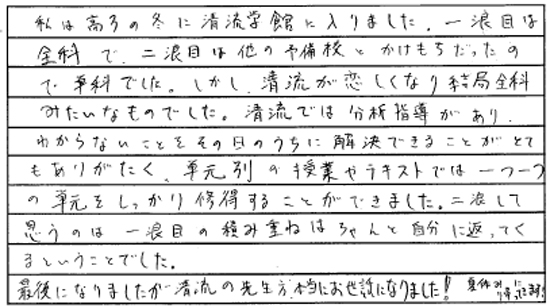 私は高3の冬に清流学館に入りました。一浪目は
全科で、二浪目は他の予備校とかけもちだったの
で単科でした。しかし、清流が恋しくなり結局全科
みたいなものでした。清流では分析指導があり、
わからないことをその日のうちに解決できることがとて
もありがたく、単元別の授業やテキストでは一つ一つ
の単元をしっかり修得することができました。二浪して
思うのは一浪目の積み重ねはちゃんと自分に返ってく
るということでした。
最後になりましたが清流の先生方、本当にお世話になりました！夏休みに帰ってきます！